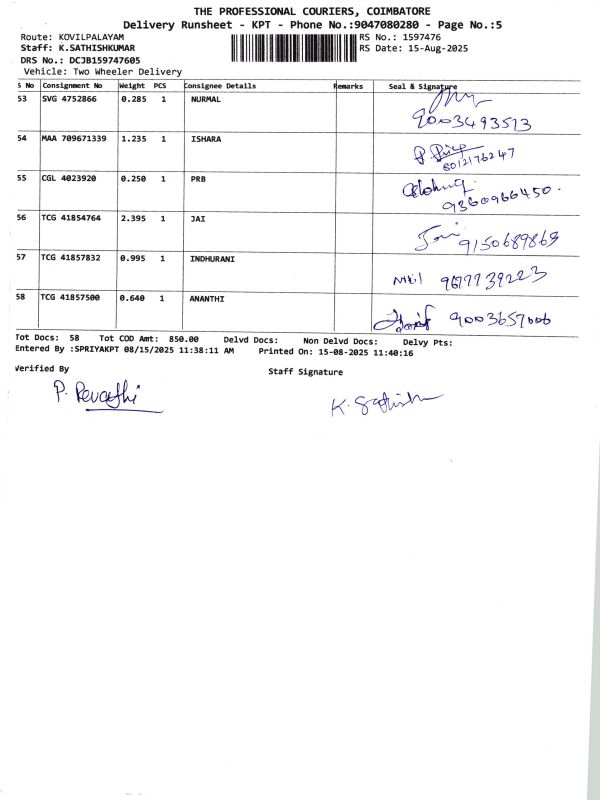 THE PROFESSIONAL COURIERS, COIMBATORE
Delivery Runsheet - KPT - Phone No.:9047080280 - Page No.:5
Route: KOVILPALAYAM RS No.: 1597476
Staff: K.SATHISHKUMAR RS Date: 15-Aug-2025
DRS No.: DCJB159747605
Vehicle: Two Wheeler Delivery
S No Consignment No Weight PCS Consignee Details Remarks Seal & Signature
53 SVG 4752866 0.285 1 NURMAL
9003493513
54 MAA 709671339 1.235 1 ISHARA
P. Priya
8012176247
55 CGL 4023920 0.250 1 PRB
9360966450.
56 TCG 41854764 2.395 1 JAI
Jai 9150689869
57 TCG 41857832 0.995 1 INDHURANI
Nikil 9677739223
58 TCG 41857500 0.640 1 ANANTHI
9003657006
Tot Docs: 58 Tot COD Amt: 850.00 Delvd Docs: Non Delvd Docs: Delvy Pts:
Entered By :SPRIYAKPT 08/15/2025 11:38:11 AM Printed On: 15-08-2025 11:40:16
Verified By Staff Signature
P. Revathi K. Sathish